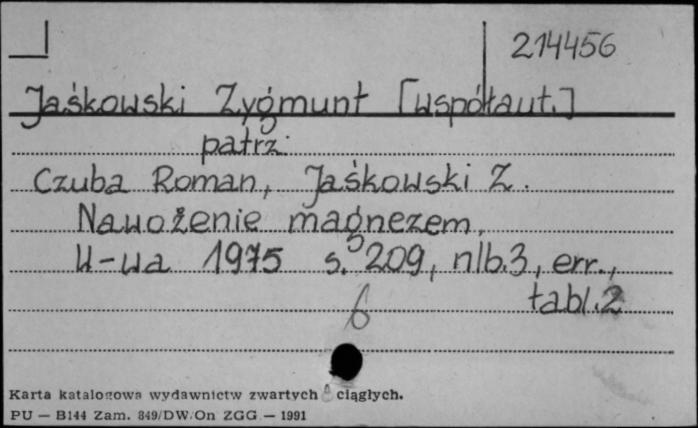 214456
Jaśkowski Zygmunt [współaut.]
patrz
Czuba Roman, Jaśkowski Z.
Nawożenie magnezem.
W-wa 1975 s. 209, nlb.3, err.,
tabl.2
6
Karta katalogowa wydawnictw zwartych ciągłych.
PU — B144 Zam. 849/DW/On ZGG — 1991